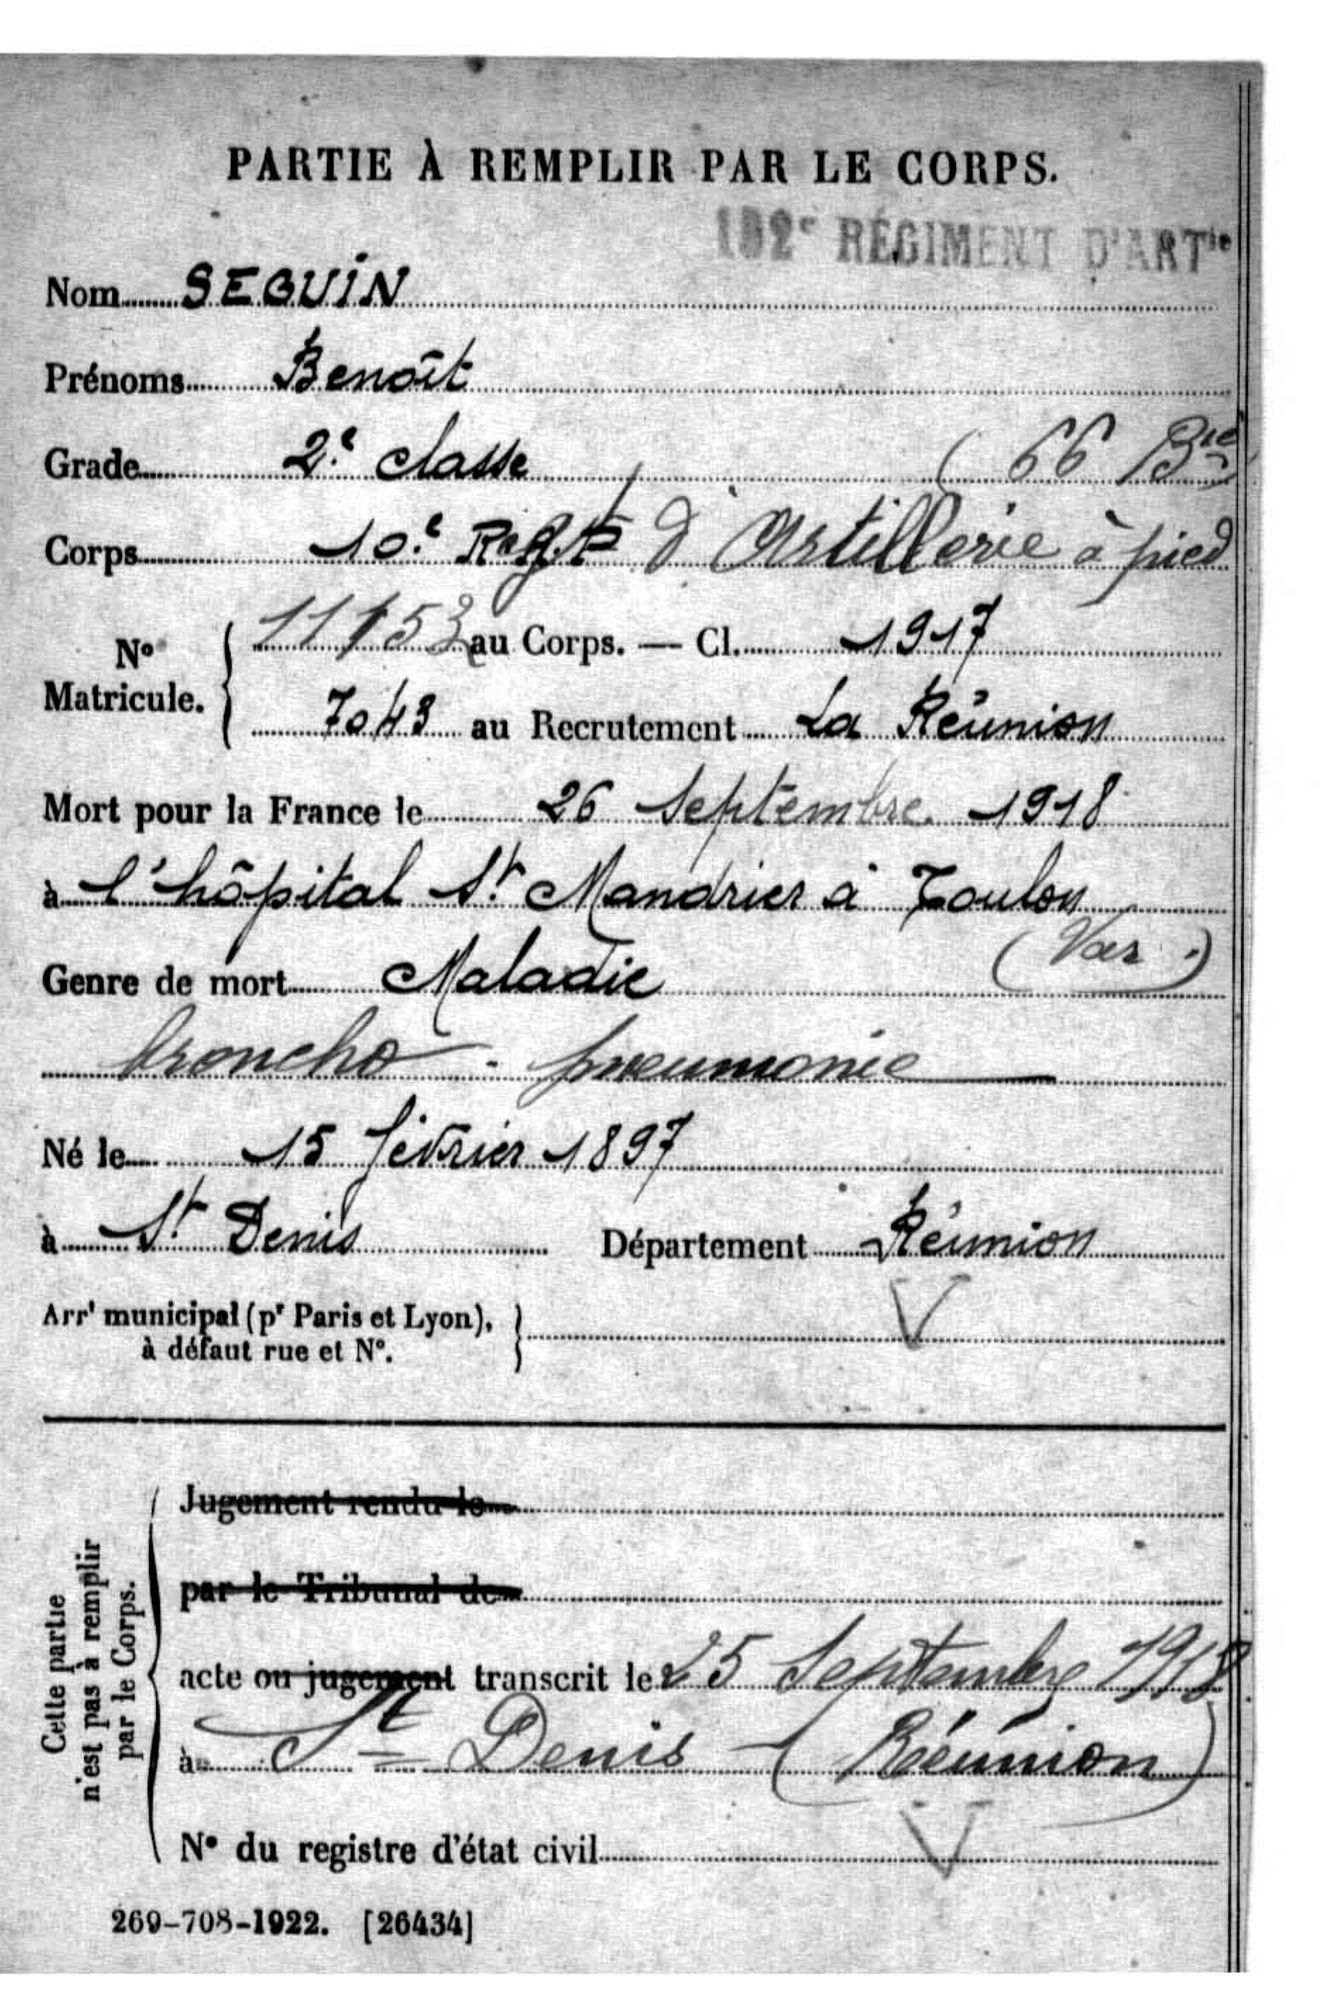 PARTIE À REMPLIR PAR LE CORPS.
RÉGIMENT D'ARTie
Nom SEGUIN
Prénoms Benoît
Grade 2e classe (66 Bie)
Corps 10e Regt d'Artillerie à pied
No Matricule. au Corps. — Cl. 1917
7043 au Recrutement La Réunion
Mort pour la France le 26 Septembre 1918
à l'hôpital St Mandrier à Toulon
(Var)
Genre de mort Maladie
broncho-pneumonie
Né le 15 février 1897
à St Denis Département Réunion
Arrt municipal (pr Paris et Lyon),
à défaut rue et No.
Cette partie
n'est pas à remplir
par le Corps.
Jugement rendu le
par le Tribunal de
acte ou jugement transcrit le 25 Septembre 1918
à St Denis (Réunion)
No du registre d'état civil
269-708-1922. [26434]